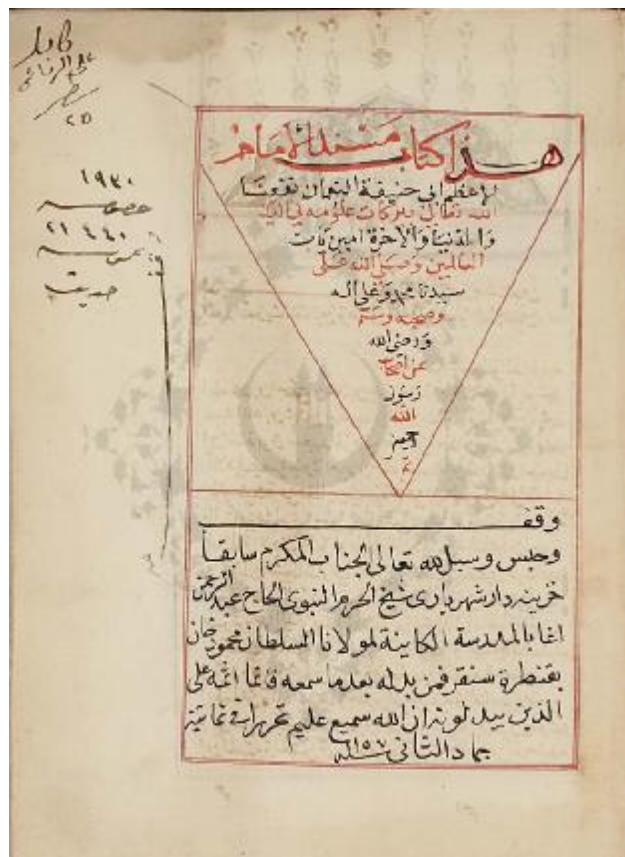 هذا كتاب مسند الامام
لاعظم ابي حنيفة النعمان نفعنا
الله تعالى ببركات علومه في الدين
والدنيا والاخرة امين يارب
العالمين وصلى الله على
سيدنا محمد وعلى اله
وصحبه وسلم
ورضى الله
عن اصحاب
رسول
الله
اجمعين
وقف
وحبس وسبل لله تعالى الجناب المكرم سابقا
خزينه دار شهرياري شيخ الحرم النبوى الحاج عبد الرحمن
اغا بالمدرسة الكاينة لمولانا السلطان محمود خان
بقنطرة سنقر فمن بدله بعد ما سمعه فانما اثمه على
الذين يبدلونه ان الله سميع عليم تحريرا في ثمانية
جماد الثاني سنة ١١٥٧
على
٢٥
١٩٣٠
خصوصيه
٢١٤٤٠
عموميه
حديث